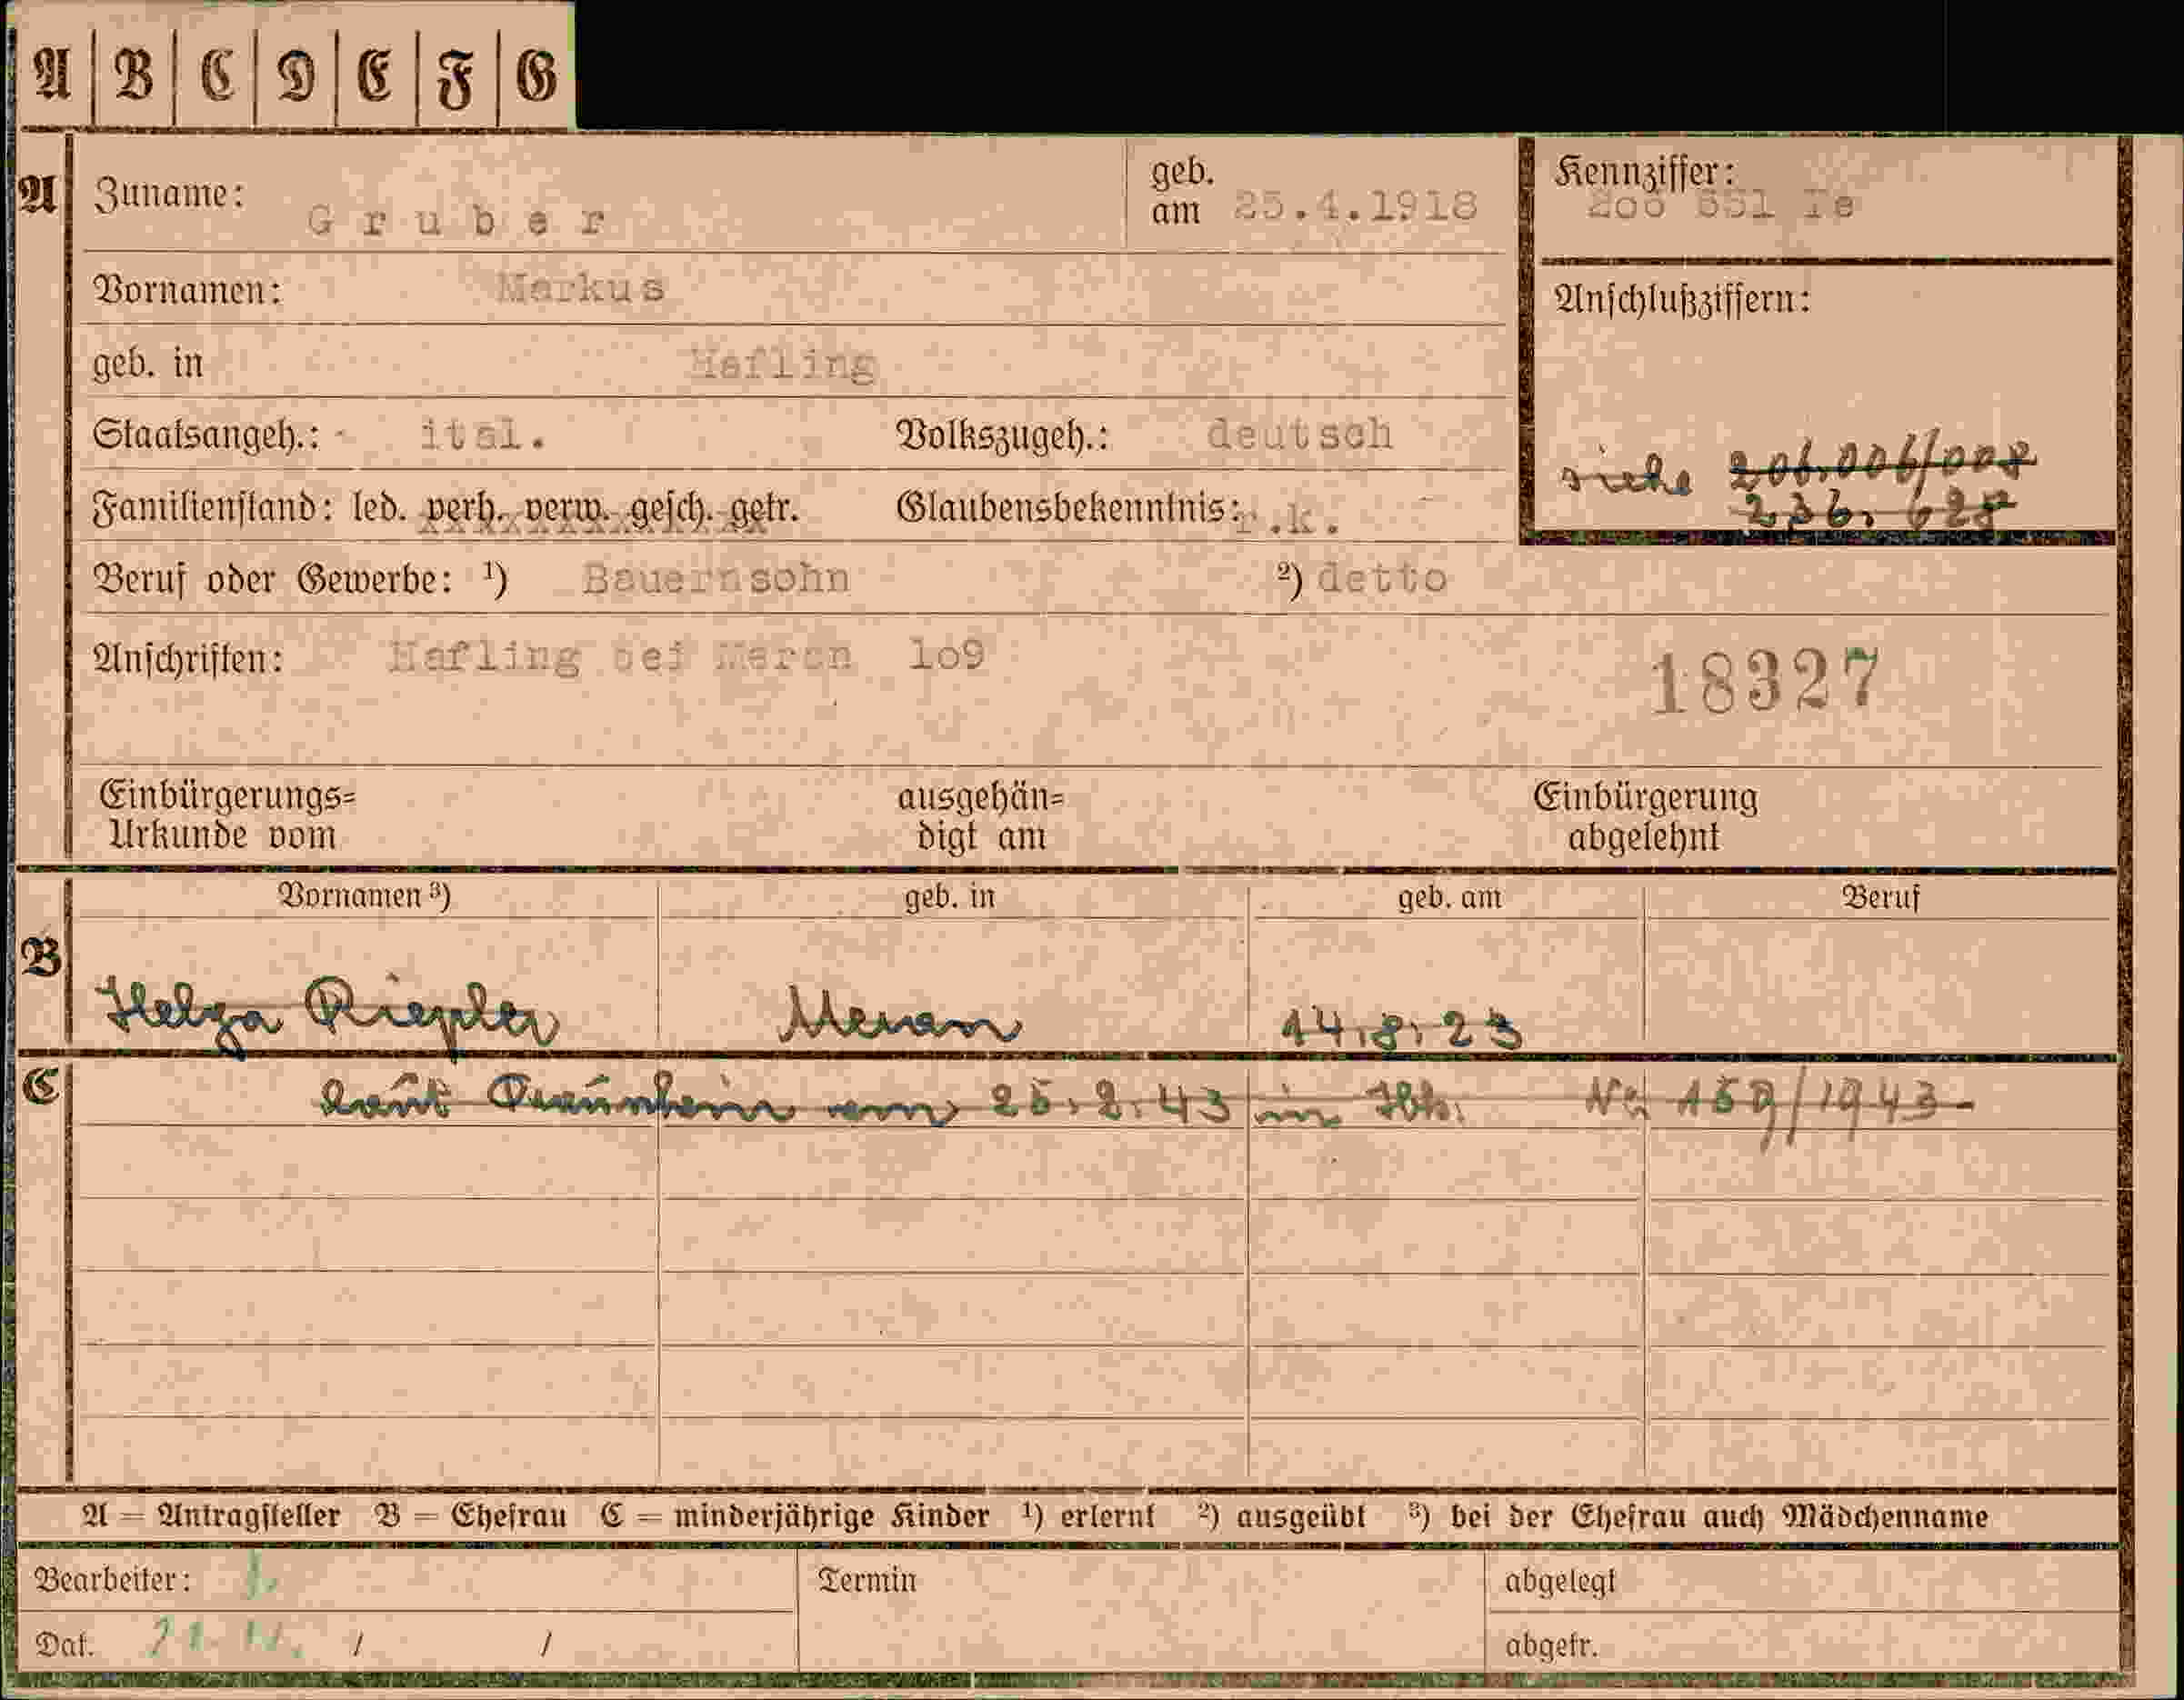 A B C D E F G
A
Zuname: Gruber
geb. am 25.4.1918
Kennziffer: 206 651 Te
Vornamen: Markus
Anschlußziffern:
geb. in Hafling
Staatsangeh.: ital. Volkszugeh.: deutsch
siehe 206.006/008
Familienstand: led. verh. verw. gesch. getr. Glaubensbekenntnis: r.k.
236.
Beruf oder Gewerbe: ¹) Bauernsohn ²) detto
Anschriften: Hafling bei Meran 1o9
18327
Einbürgerungs= ausgehän= Einbürgerung
Urkunde vom digt am abgelehnt
B
Vornamen ³) geb. in geb. am Beruf
Helga Riepler Meran 14.8.23
C
laut 25.2.43 in Ibk. No 159/1943-
A = Antragsteller B = Ehefrau C = minderjährige Kinder ¹) erlernt ²) ausgeübt ³) bei der Ehefrau auch Mädchenname
Bearbeiter: Termin abgelegt
Dat. / / abgetr.